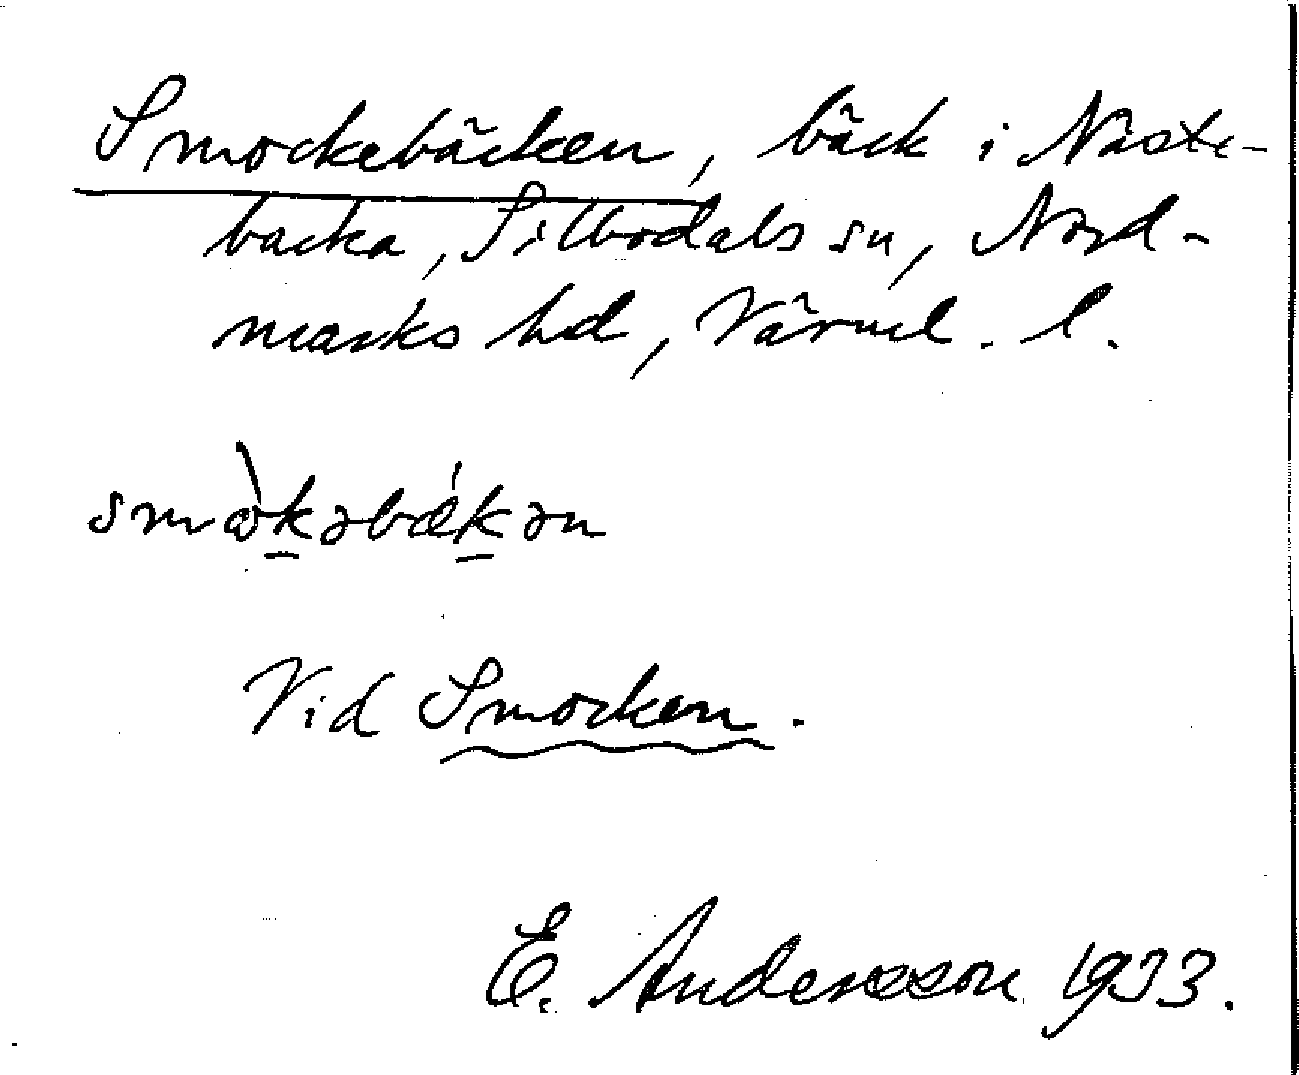 Smockebäcken, bäck i Näste-
backa, Sillbodals sn, Nord-
marks hd, Värml. l.
smòkəbǽkən
Vid Smocken.
E. Andersson 1933.